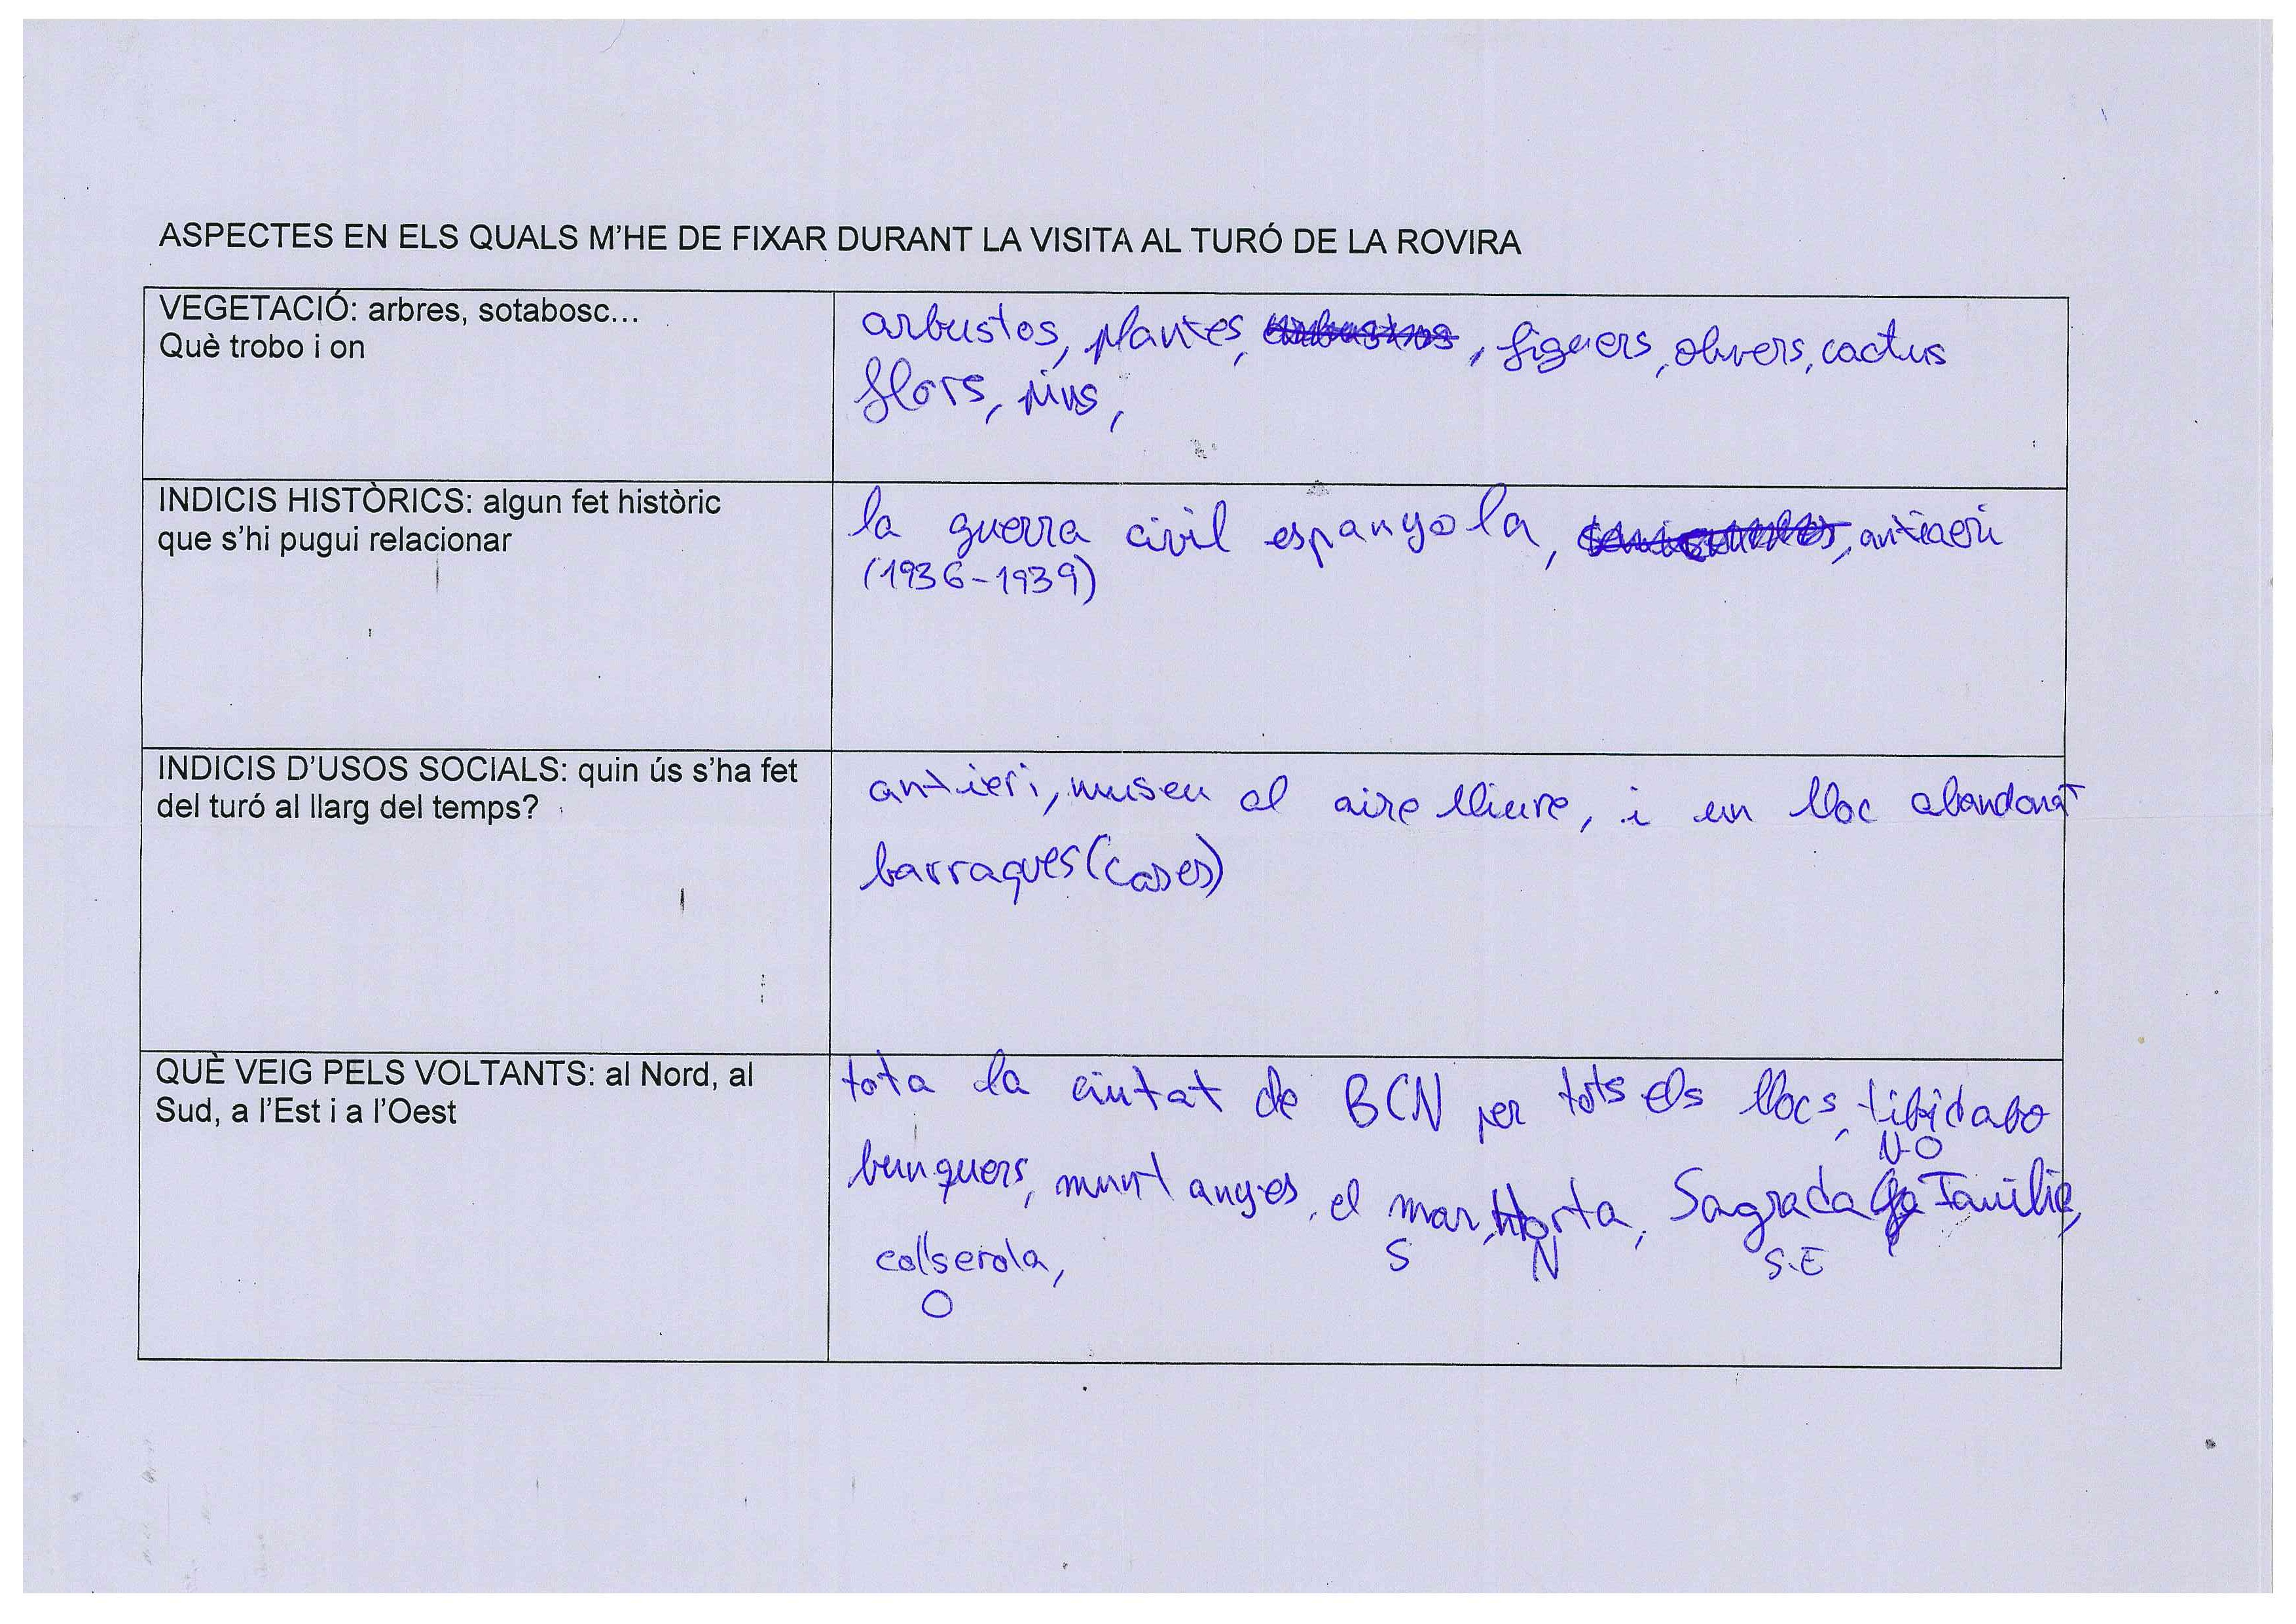 ASPECTES EN ELS QUALS M'HE DE FIXAR DURANT LA VISITA AL TURÓ DE LA ROVIRA
VEGETACIÓ: arbres, sotabosc...
Què trobo i on
arbustos, plantes, , figuers, olivers, cactus
flors, pins,
INDICIS HISTÒRICS: algun fet històric
que s'hi pugui relacionar
la guerra civil espanyola, , antiaeri
(1936-1939)
INDICIS D'USOS SOCIALS: quin ús s'ha fet
del turó al llarg del temps?
antieri, museu al aire lliure, i un lloc abandonat
barraques (cases)
QUÈ VEIG PELS VOLTANTS: al Nord, al
Sud, a l'Est i a l'Oest
tota la ciutat de BCN per tots els llocs, tibidabo
N-O
bunquers, muntanyes, el mar, Horta, Sagrada Familia,
S N S.E
collserola,
O